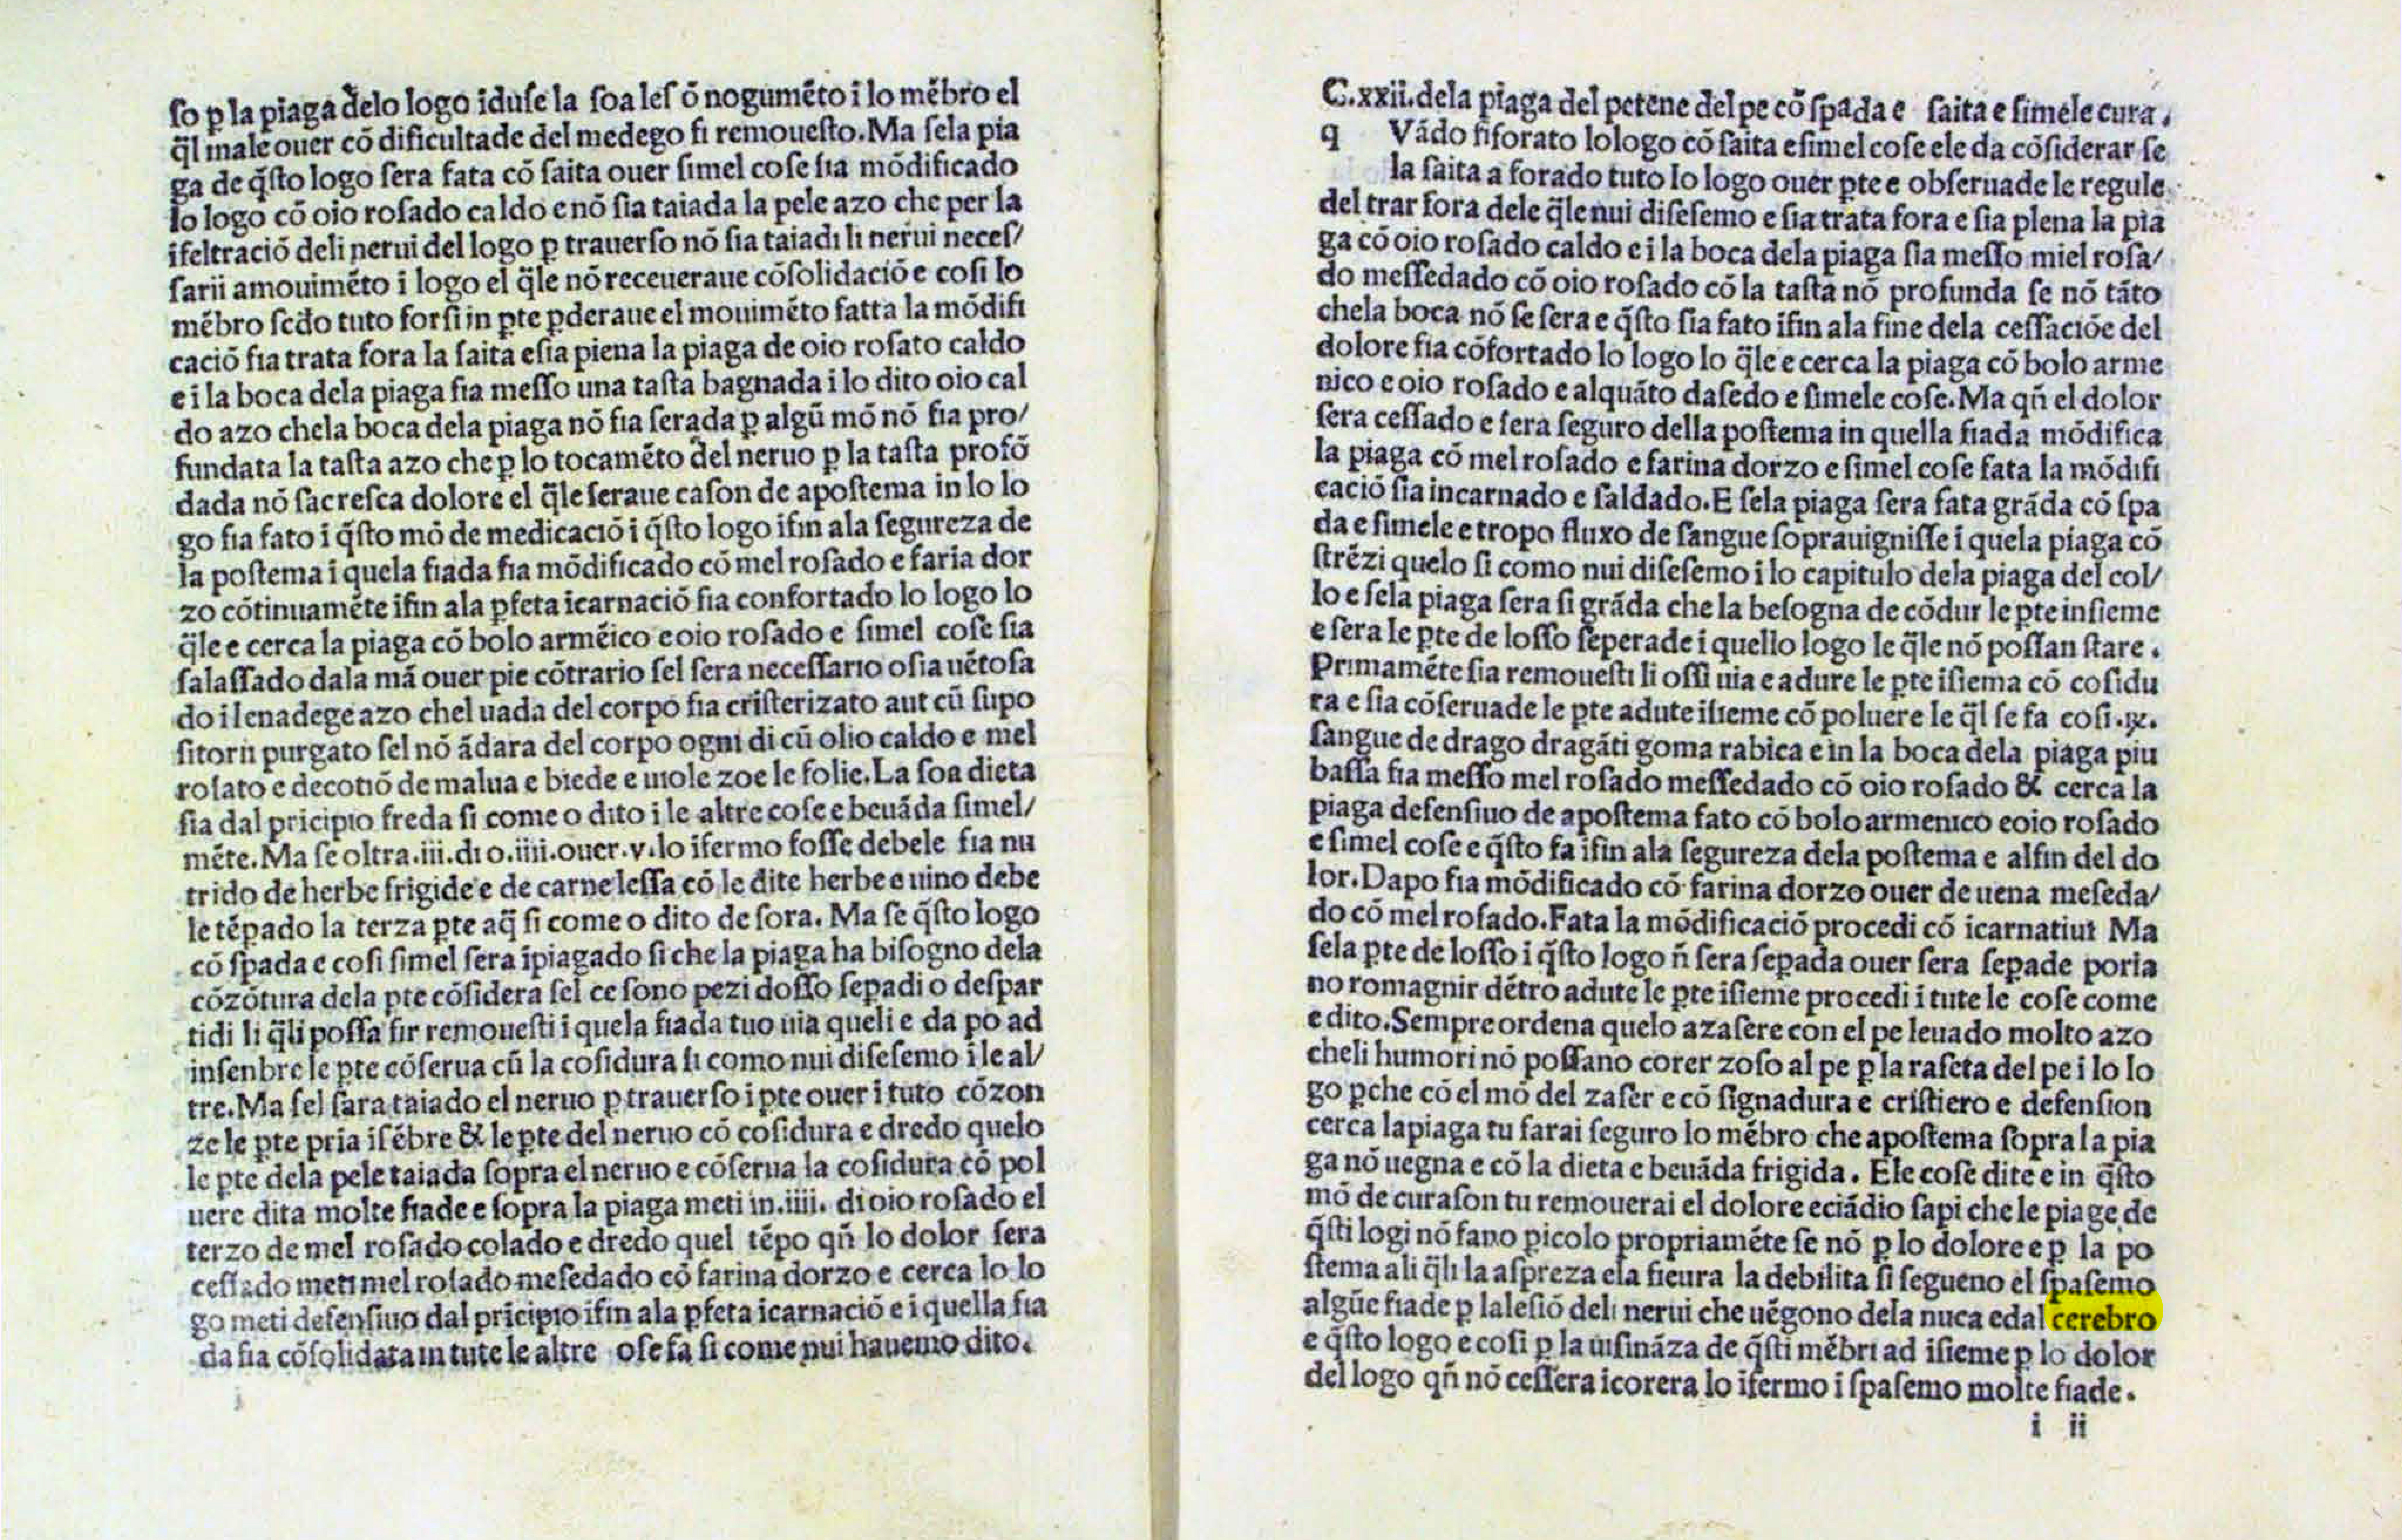 ſo ꝑ la piaga đelo logo ĩduſe la ſoa leſ õ nogumẽto ĩ lo mẽbro el
q̃l male ouer cõ dificultade del medego ſi remoueſto. Ma ſela pia
ga de q̃ſto logo ſera fata cõ ſaita ouer ſimel coſe ſia mõdificado
lo logo cõ oio roſado caldo e nõ ſia taiada la pele azo che per la
ifeltraciõ deli nerui del logo ꝑ trauerſo nõ ſia taiadi li nerui neceſ/
ſarii amouimẽto ĩ logo el q̃le nõ receueraue cõſolidaciõ e coſi lo
mẽbro ſecõdo tuto forſi in ꝑte ꝑderaue el mouimẽto fatta la mõdifi
caciõ ſia trata fora la ſaita e ſia piena la piaga de oio roſato caldo
e ĩ la boca dela piaga ſia meſſo una taſta bagnada ĩ lo dito oio cal
do azo chela boca dela piaga nõ ſia ſerada ꝑ algũ mõ nõ ſia pro/
fundata la taſta azo che ꝑ lo tocamẽto đel neruo ꝑ la taſta profõ
dada nõ ſacreſca dolore el q̃le ſeraue caſon de apoſtema in lo lo
go ſia fato ĩ q̃ſto mõ de medicaciõ ĩ q̃ſto logo iſin ala ſegureza de
la poſtema ĩ quela fiada ſia mõdificado cõ mel roſado e faria dor
zo cõtinuamẽte iſin ala ꝑfeta ĩcarnaciõ ſia confortado lo logo lo
q̃le e cerca la piaga cõ bolo armẽico e oio roſado e ſimel coſe ſia
ſalaſſado dala mã ouer pie cõtrario ſel ſera neceſſario o ſia uẽtoſa
do ĩ le nadege azo chel uada del corpo ſia criſterizato aut cũ ſupo
ſitorii purgato ſel nõ ãdara del corpo ogni di cũ olio caldo e mel
roſato e decotiõ de malua e biede e uiole zoe le folie. La ſoa dieta
ſia dal pricipio freda ſi come o dito ĩ le altre coſe e beuãda ſimel/
mẽte. Ma ſe oltra .iii. di o .iiii. ouer .v. lo ifermo foſſe debele ſia nu
trido de herbe frigide e de carne leſſa cõ le dite herbe e uino debe
le tẽpado la terza ꝑte aq̃ ſi come o dito de ſora. Ma ſe q̃ſto logo
cõ ſpada e coſi ſimel ſera ĩpiagado ſi che la piaga ha biſogno dela
cõzõtura dela ꝑte cõſidera ſel ce ſono pezi doſſo ſeꝑadi o deſpar
tidi li q̃li poſſa fir remoueſti ĩ quela fiada tuo uia queli e da po ad
inſenbre le ꝑte cõſerua cũ la coſidura ſi como nui diſeſemo ĩ le al/
tre. Ma ſel ſara taiado el neruo ꝑ trauerſo ĩ ꝑte ouer ĩ tuto cõzon
ze le ꝑte pria iſẽbre & le ꝑte del neruo cõ coſidura e dredo quelo
le ꝑte dela pele taiada ſopra el neruo e cõſerua la coſidura cõ pol
uere dita molte fiade e ſopra la piaga meti in .iiii. di oio roſado el
terzo de mel roſado colado e dredo quel tẽpo qñ lo dolor ſera
ceſſado meti mel roſado meſedado cõ farina dorzo e cerca lo lo
go meti defenſiuo dal prĩcipio iſin ala ꝑfeta icarnaciõ e ĩ quella fia
da ſia cõſolidata in tute le altre oſe fa ſi come nui hauemo dito.
C. xxii. dela piaga del petene del pe cõ ſpada e ſaita e ſimele cura.
q Vãdo ſi forato lo logo cõ ſaita e ſimel coſe ele da cõſiderar ſe
la ſaita a forado tuto lo logo ouer ꝑte e obſeruade le regule
del trar fora dele q̃le nui diſeſemo e ſia trata fora e ſia plena la pia
ga cõ oio roſado caldo e ĩ la boca dela piaga ſia meſſo miel roſa/
do meſſedado cõ oio roſado cõ la taſta nõ profunda ſe nõ tãto
chela boca nõ ſe ſera e q̃ſto ſia fato ĩfin ala fine dela ceſſaciõe del
dolore ſia cõfortado lo logo lo q̃le e cerca la piaga cõ bolo arme
nico e oio roſado e alquãto daſedo e ſimele coſe. Ma qñ el dolor
ſera ceſſado e ſera ſeguro della poſtema in quella fiada mõdifica
la piaga cõ mel roſado e farina dorzo e ſimel coſe fata la mõdifi
caciõ ſia incarnado e ſaldado. E ſela piaga ſera fata grãda cõ ſpa
da e ſimele e tropo fluxo de ſangue ſoprauigniſſe ĩ quela piaga cõ
ſtrẽzi quelo ſi como nui diſeſemo ĩ lo capitulo dela piaga del col/
lo e ſela piaga ſera ſi grãda che la beſogna de cõdur le ꝑte inſieme
e ſera le ꝑte de loſſo ſeperade ĩ quello logo le q̃le nõ poſſan ſtare.
Primamẽte ſia remoueſti li oſſi uia e adure le ꝑte iſiema cõ coſidu
ra e ſia cõſeruade le ꝑte adute iſieme cõ poluere le q̃l ſe fa coſi. ℞.
ſangue de drago dragãti goma rabica e in la boca dela piaga piu
baſſa ſia meſſo mel roſado meſſedado cõ oio roſado & cerca la
piaga defenſiuo de apoſtema fato cõ bolo armenico e oio roſado
e ſimel coſe e q̃ſto fa iſin ala ſegureza dela poſtema e alfin del do
lor. Dapo ſia mõdificado cõ farina dorzo ouer de uena meſeda/
do cõ mel roſado. Fata la mõdificaciõ procedi cõ icarnatiui Ma
ſela ꝑte de loſſo ĩ q̃ſto logo ñ ſera ſeꝑada ouer ſera ſeꝑade poria
no romagnir dẽtro adute le ꝑte iſieme procedi ĩ tute le coſe come
e dito. Sempre ordena quelo azaſere con el pe leuado molto azo
cheli humori nõ poſſano corer zoſo al pe ꝑ la raſeta del pe ĩ lo lo
go ꝑche cõ el mõ del zaſer e cõ ſignadura e criſtiero e defenſion
cerca lapiaga tu farai ſeguro lo mẽbro che apoſtema ſopra la pia
ga nõ uegna e cõ la dieta e beuãda frigida. E le coſe dite e in q̃ſto
mõ de curaſon tu remouerai el dolore eciãdio ſapi che le piage de
q̃ſti logi nõ fano ꝑicolo propriamẽte ſe nõ ꝑ lo dolore e ꝑ la po
ſtema ali q̃li la aſpreza ela fieura la debilita ſi ſegueno el ſpaſemo
algũe fiade ꝑ laleſiõ deli nerui che uẽgono dela nuca edal cerebro
e q̃ſto logo e coſi ꝑ la uiſinãza de q̃ſti mẽbri ad iſieme ꝑ lo dolor
del logo qñ nõ ceſſera icorera lo ifermo ĩ ſpaſemo molte fiade.
i ii